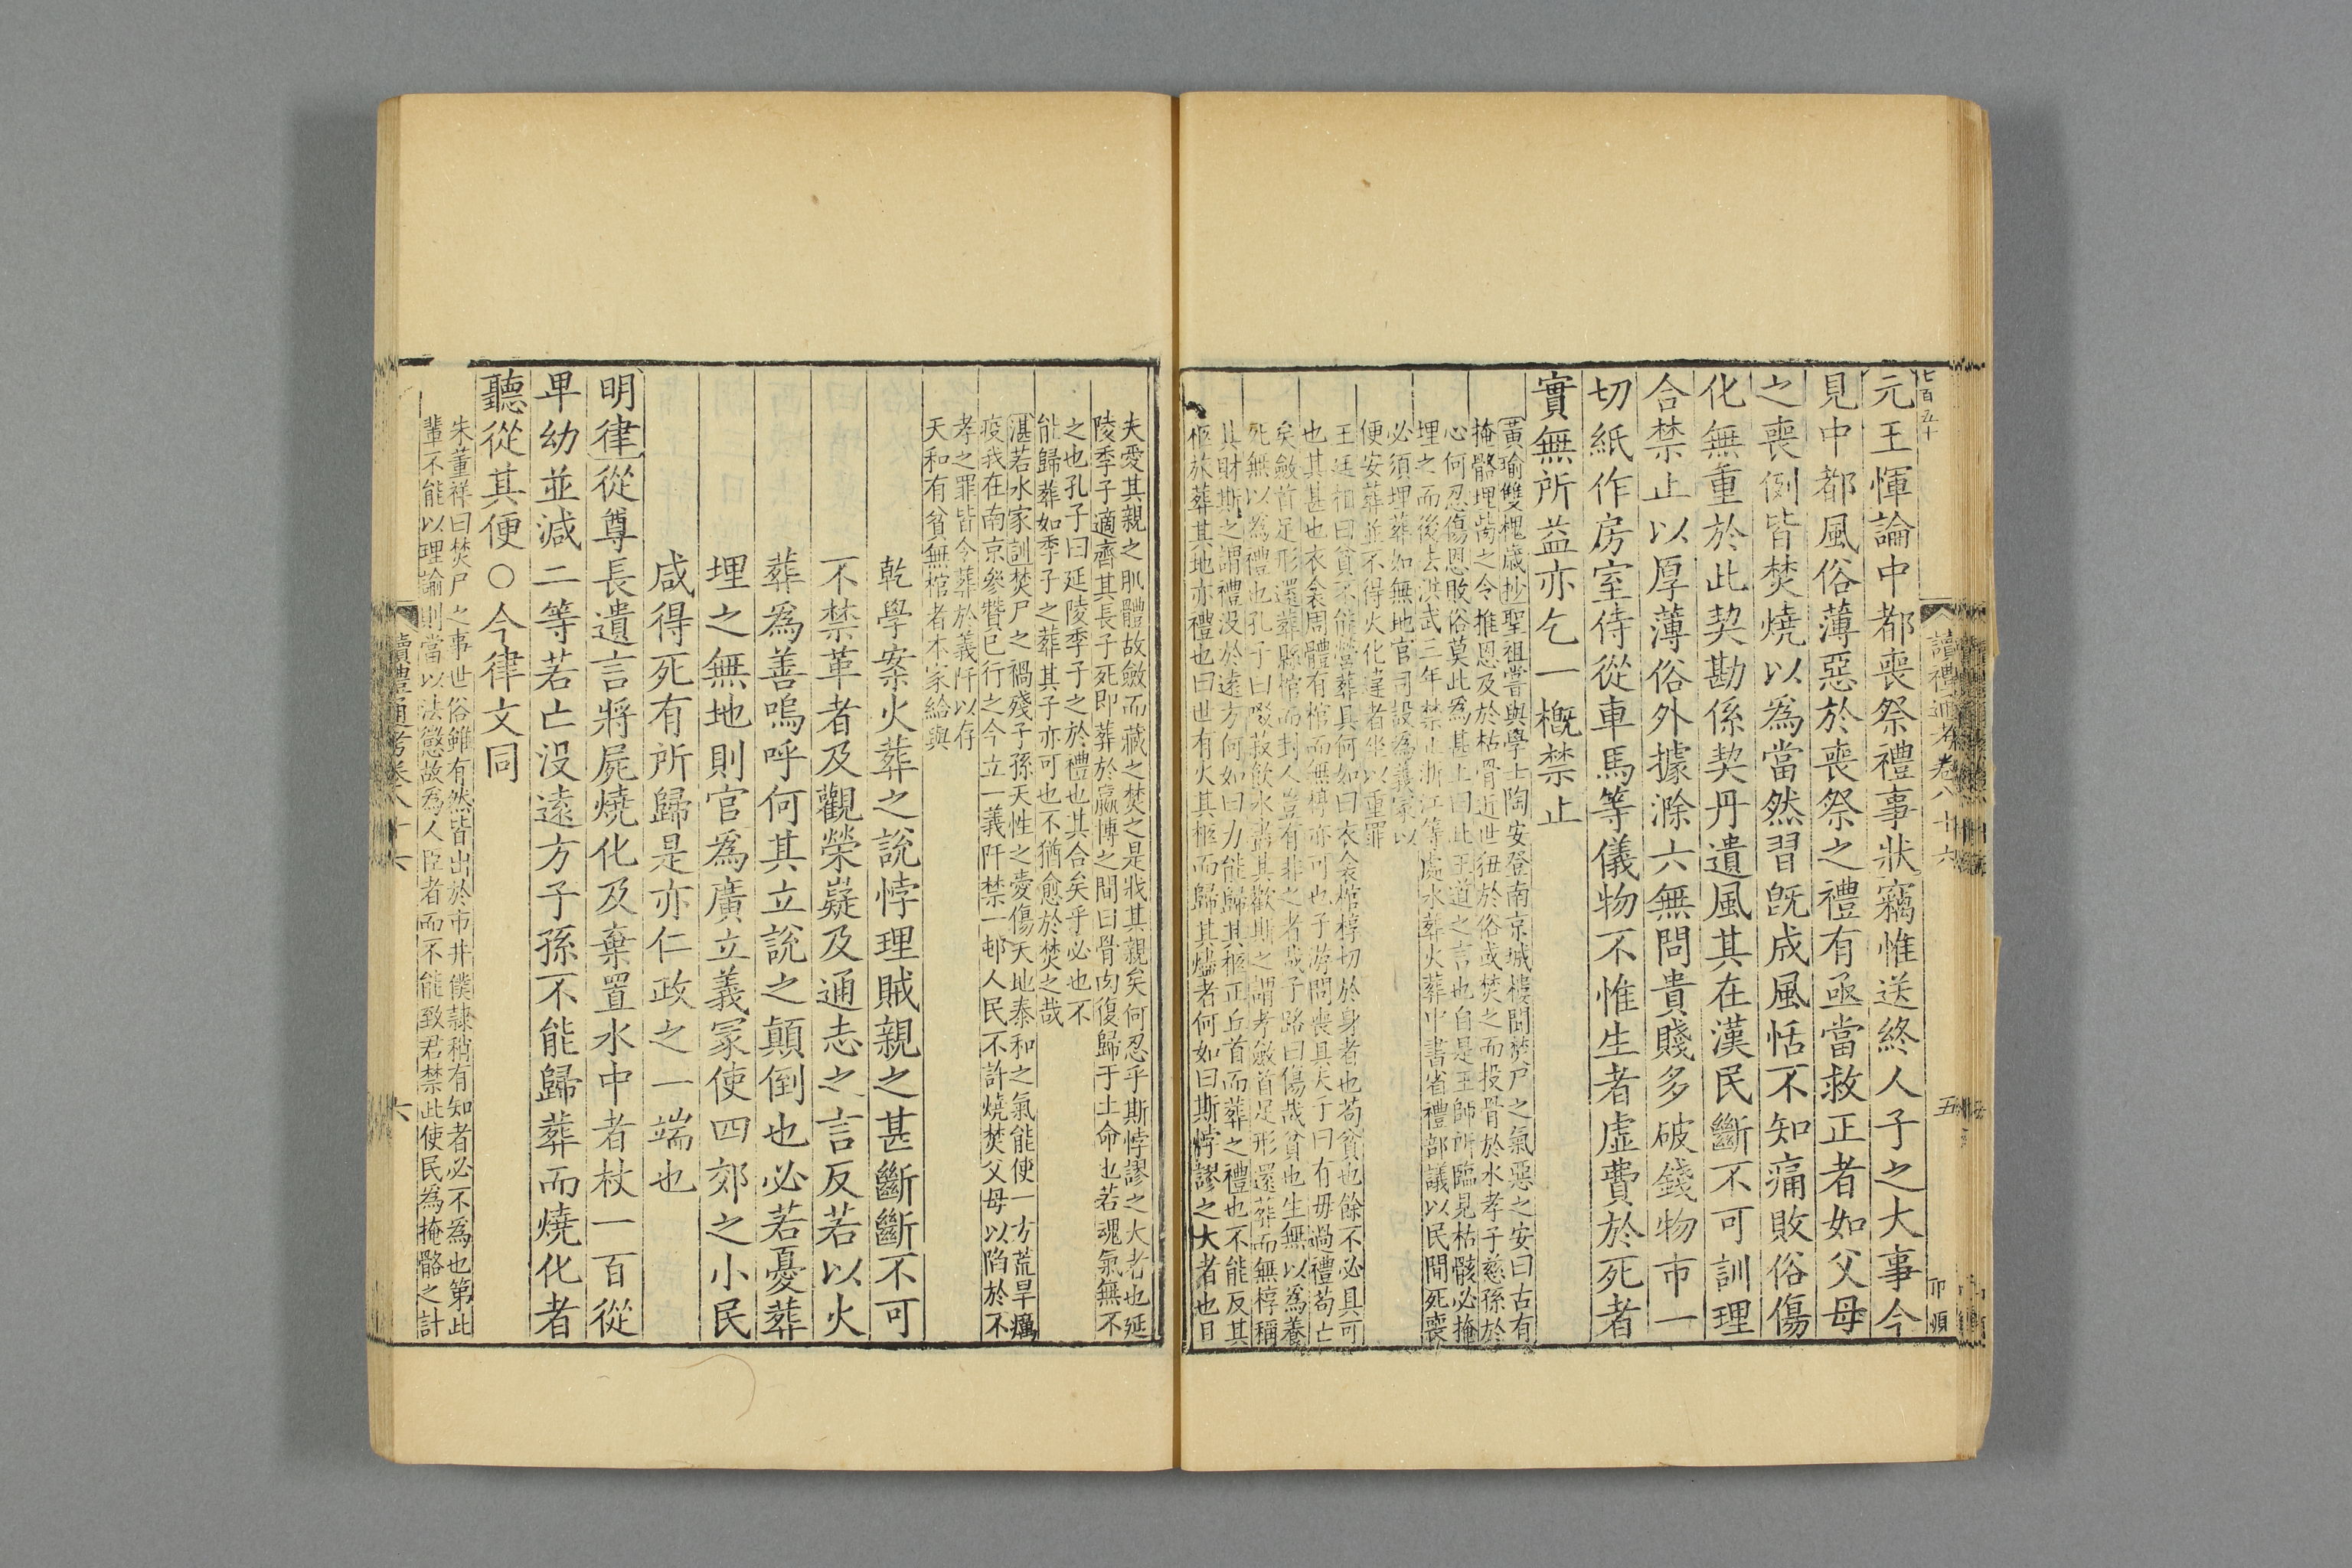 七百五十
讀禮通考卷八十六
五
元王惲論中都喪祭禮事狀竊惟送終人子之大事今
見中都風俗薄惡於喪祭之禮有亟當救正者如父母
之喪例皆焚燒以爲當然習旣成風恬不知痛敗俗傷
化無重於此契勘係契丹遺風其在漢民斷不可訓理
合禁止以厚薄俗外據滁六無問貴賤多破錢物市一
切紙作房室侍從車馬等儀物不惟生者虛費於死者
實無所益亦乞一槪禁止
黃瑜雙槐歲抄聖祖嘗與學士陶安登南京城樓聞焚尸之氣惡之安曰古有
掩骼埋胔之令推恩及於枯骨近世狃於俗或焚之而投骨於水孝子慈孫於
心何忍傷恩敗俗莫此爲甚上曰此王道之言也自是王師所臨見枯骸必掩
埋之而後去洪武三年禁止浙江等處水葬火葬中書省禮部議以民間死喪
必須埋葬如無地官司設爲義冢以
便安葬並不得火化違者坐以重罪
王廷相曰貧不能營葬具何如曰衣衾棺椁切於身者也苟貧也餘不必具可
也其甚也衣衾周體有棺而無椁亦可也子游問喪具夫子曰有毋過禮苟亡
矣斂首足形還葬縣棺而封人豈有非之者哉子路曰傷哉貧也生無以爲養
死無以爲禮也孔子曰啜菽飲水盡其歡斯之謂孝斂首足形還葬而無椁稱
其財斯之謂禮沒於遠方何如曰力能歸其柩正丘首而葬之禮也不能反其
柩旅葬其地亦禮也曰世有火其柩而歸其燼者何如曰斯悖謬之大者也曰
夫愛其親之肌體故斂而藏之焚之是戕其親矣何忍乎斯悖謬之大者也延
陵季子適齊其長子死即葬於嬴博之間曰骨肉復歸于土命也若魂氣無不
之也孔子曰延陵季子之於禮也其合矣乎必也不
能歸葬如季子之葬其子亦可也不猶愈於焚之哉
湛若水家訓焚尸之禍殘子孫天性之愛傷天地泰和之氣能使一方荒旱癘
疫我在南京參贊已行之今立一義阡禁一邨人民不許燒焚父母以陷於不
孝之罪皆令葬於義阡以存
天和有貧無棺者本家給與
乾學案火葬之說悖理賊親之甚斷斷不可
不禁革者及觀榮嶷及通志之言反若以火
葬爲善嗚呼何其立說之顛倒也必若憂葬
埋之無地則官爲廣立義冢使四郊之小民
咸得死有所歸是亦仁政之一端也
明律從尊長遺言將屍燒化及棄置水中者杖一百從
卑幼並減二等若亡沒遠方子孫不能歸葬而燒化者
聽從其便○今律文同
朱董祥曰焚尸之事世俗雖有然皆出於市井僕隸稍有知者必不爲也第此
輩不能以理諭則當以法懲故爲人臣者而不能致君禁此使民爲掩骼之計
讀禮通考卷八十六
六